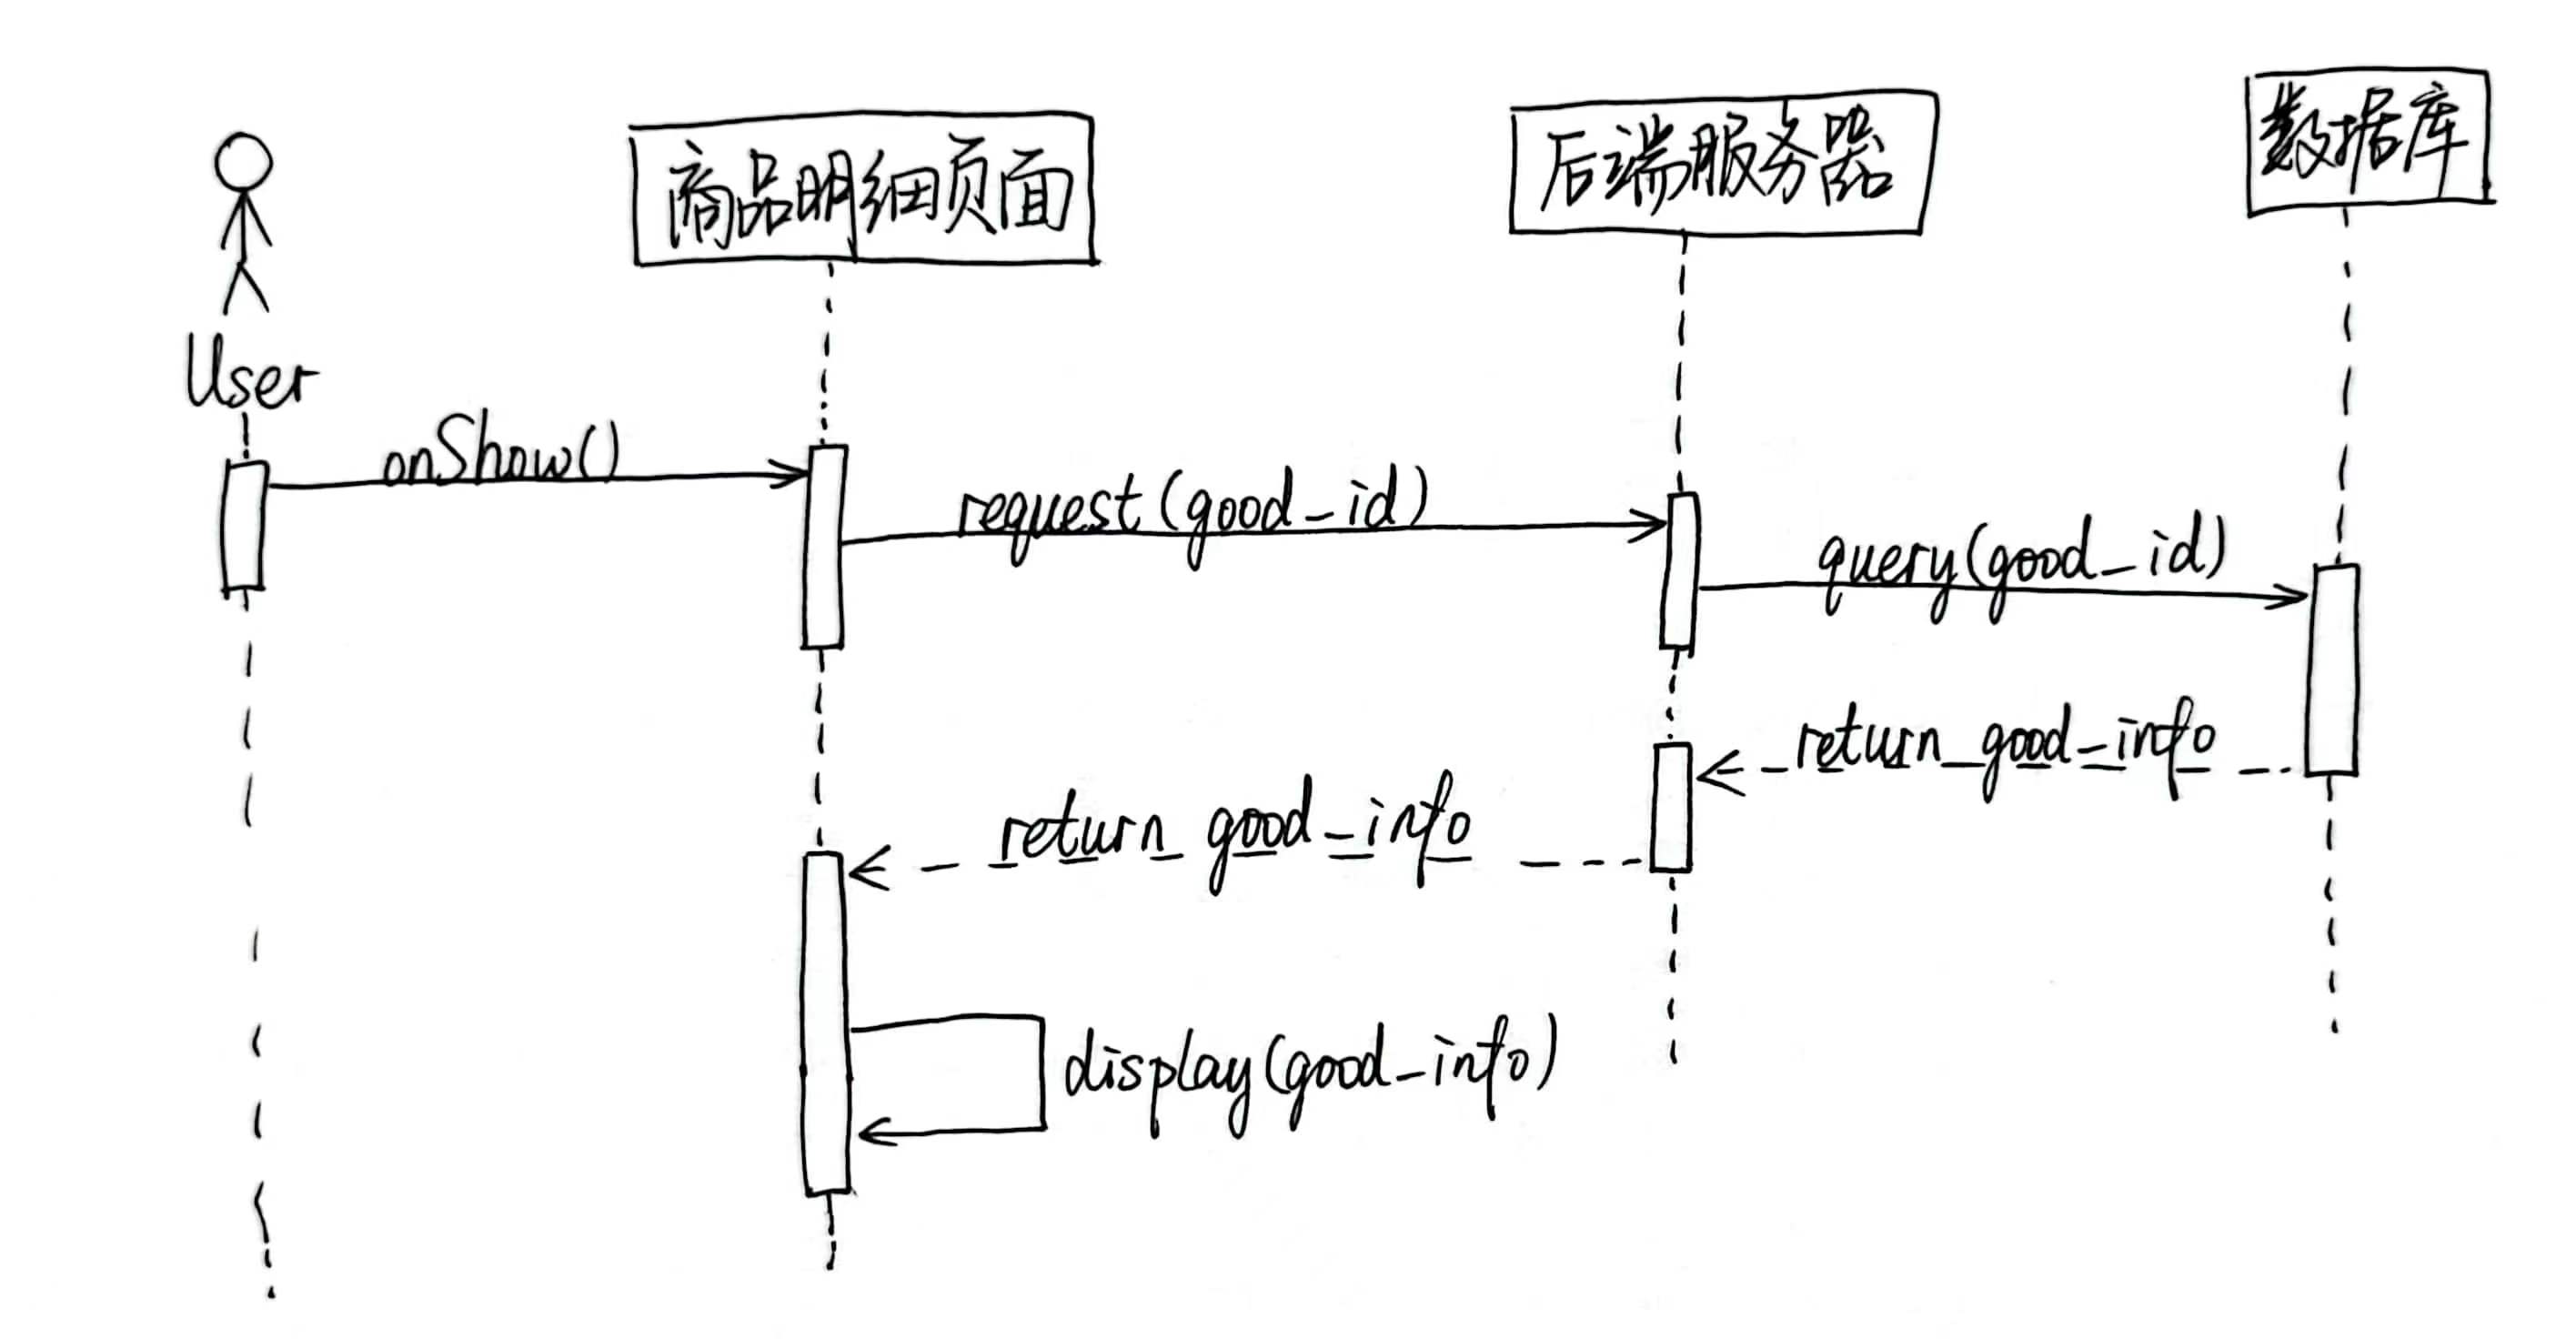 商品明细页面
后端服务器
数据库
User
onShow()
request(good_id)
query(good_id)
return good_info
return good_info
display(good_info)